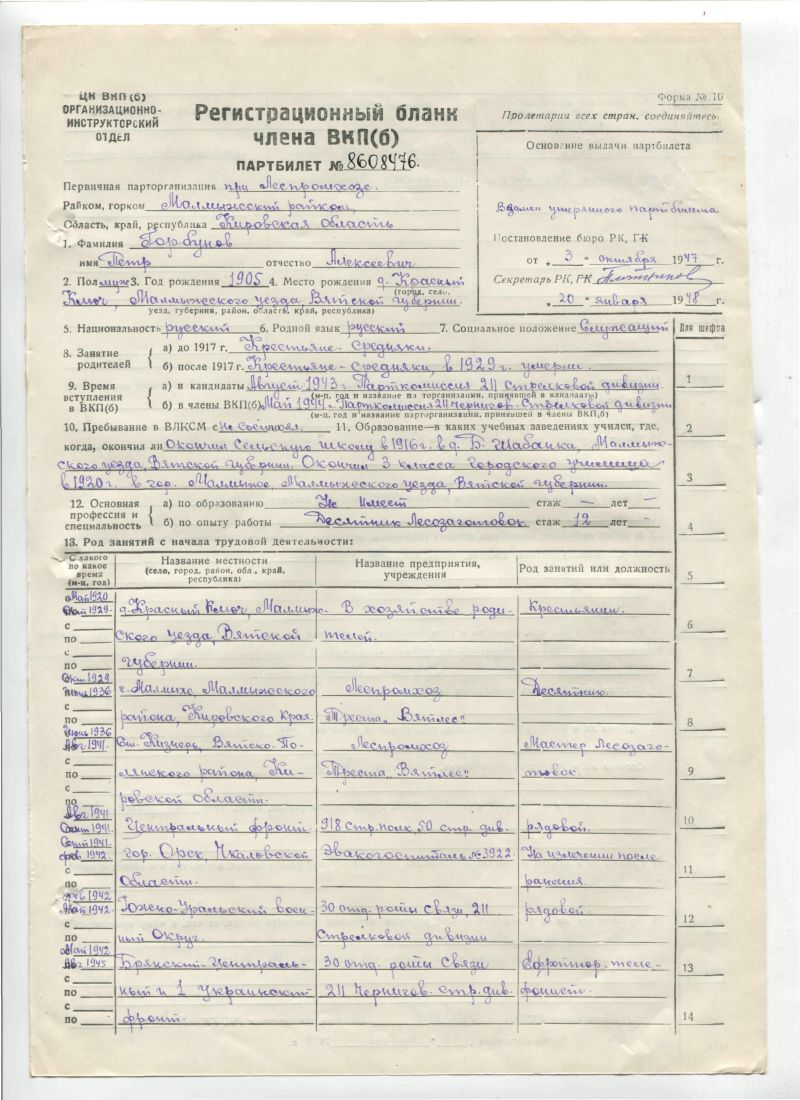 ЦК ВКП(б)
ОРГАНИЗАЦИОННО-
ИНСТРУКТОРСКИЙ
ОТДЕЛ
Регистрационный бланк
члена ВКП(б)
ПАРТБИЛЕТ № 8608476.
Форма № 10
Пролетарии всех стран, соединяйтесь.
Основание выдачи партбилета
Взамен утерянного партбилета
Постановление бюро РК, ГК
от „ 3 “ октября 1947 г.
Секретарь РК, ГК
„ 20 “ января 1948 г.
Первичная парторганизация при Леспромхозе.
Райком, горком Малмыжсский райком,
Область, край, республика Кировская область
1. Фамилия Горбунов
имя Петр отчество Алексеевич
2. Пол муж 3. Год рождения 1905 4. Место рождения д. Красный
(город, село,
Ключ, Малмыжского уезда, Вятской губернии.
уезд, губерния, район, область, край, республика)
5. Национальность русский 6. Родной язык русский 7. Социальное положение Служащий
Для шифра
8. Занятие родителей
а) до 1917 г. Крестьяне-Средняки.
б) после 1917 г. Крестьяне-средняки, в 1929 г. умерли.
9. Время вступления в ВКП(б)
а) в кандидаты Август 1943 г. Парткомиссия 211 Стрелковой дивизии.
(м-ц, год и название парторганизации, принявшей в кандидаты)
б) в члены ВКП(б) Май 1944 г. Парткомиссия 211 Чернигов. Стрелковой дивизии
(м-ц, год и название парторганизации, принявшей в члены ВКП(б)
10. Пребывание в ВЛКСМ с Не состоял. 11. Образование—в каких учебных заведениях учился, где,
когда, окончил ли Окончил Сельскую школу в 1916 г. в д. Б. Шабанка, Малмыж-
ского уезда, Вятской губернии. Окончил 3 класса городского училища
в 1920 г. в гор. Малмыже, Малмыжского уезда, Вятской губернии.
12. Основная профессия и специальность
а) по образованию Не имеет стаж — лет —
б) по опыту работы Десятник Лесозаготовок. стаж 12 лет —
13. Род занятий с начала трудовой деятельности:
С какого по какое время (м-ц, год)
Название местности (село, город, район, обл., край, республика)
Название предприятия, учреждения
Род занятий или должность
Май 1920
Окт 1929
д. Красный Ключ, Малмыж- В хозяйстве роди- Крестьянин.
ского уезда, Вятской телей.
губернии.
Окт 1929
Июнь 1936
г. Малмыж, Малмыжского Леспромхоз Десятник.
района, Кировского Края. Треста „Вятлес“
Июнь 1936
Авг 1941.
Ст. Кизнерь, Вятско-По- Леспромхоз Мастер Лесозаго-
лянского района, Ки- Треста „Вятлес“ товок.
ровской области.
Авг 1941
Сент 1941.
Центральный фронт 918 стр. полк 50 стр. див. рядовой.
Сент 1941.
фев 1942.
гор. Орск, Чкаловской Эвакогоспиталь № 3922. На излечении после
Области. ранения.
фев 1942
Май 1942.
Южно-Уральский воен- 30 отд. роты связи, 211 рядовой.
ный Округ. Стрелковой дивизии
Май 1942
Авг 1945
Брянский-Централь- 30 отд. роты Связи Ефрейтор. теле-
ный и 1 Украинский 211 Чернигов. стр. див. фонист.
фронт.
с
по
1
2
3
4
5
6
7
8
9
10
11
12
13
14